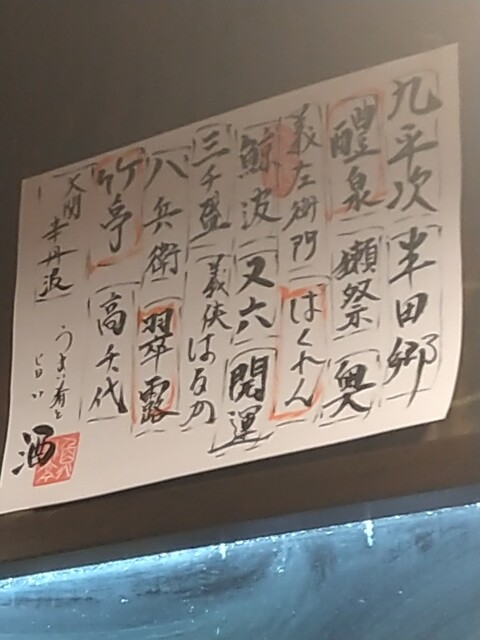 九平次 半田郷
醴泉 獺祭 奥
義左衛門 ばくれん
鯨波 又六 開運
三千盛 義侠 はるか
八兵衛 羽卒露
竹亭 高千代
大関 辛丹波
うまい肴と
旨い
酒